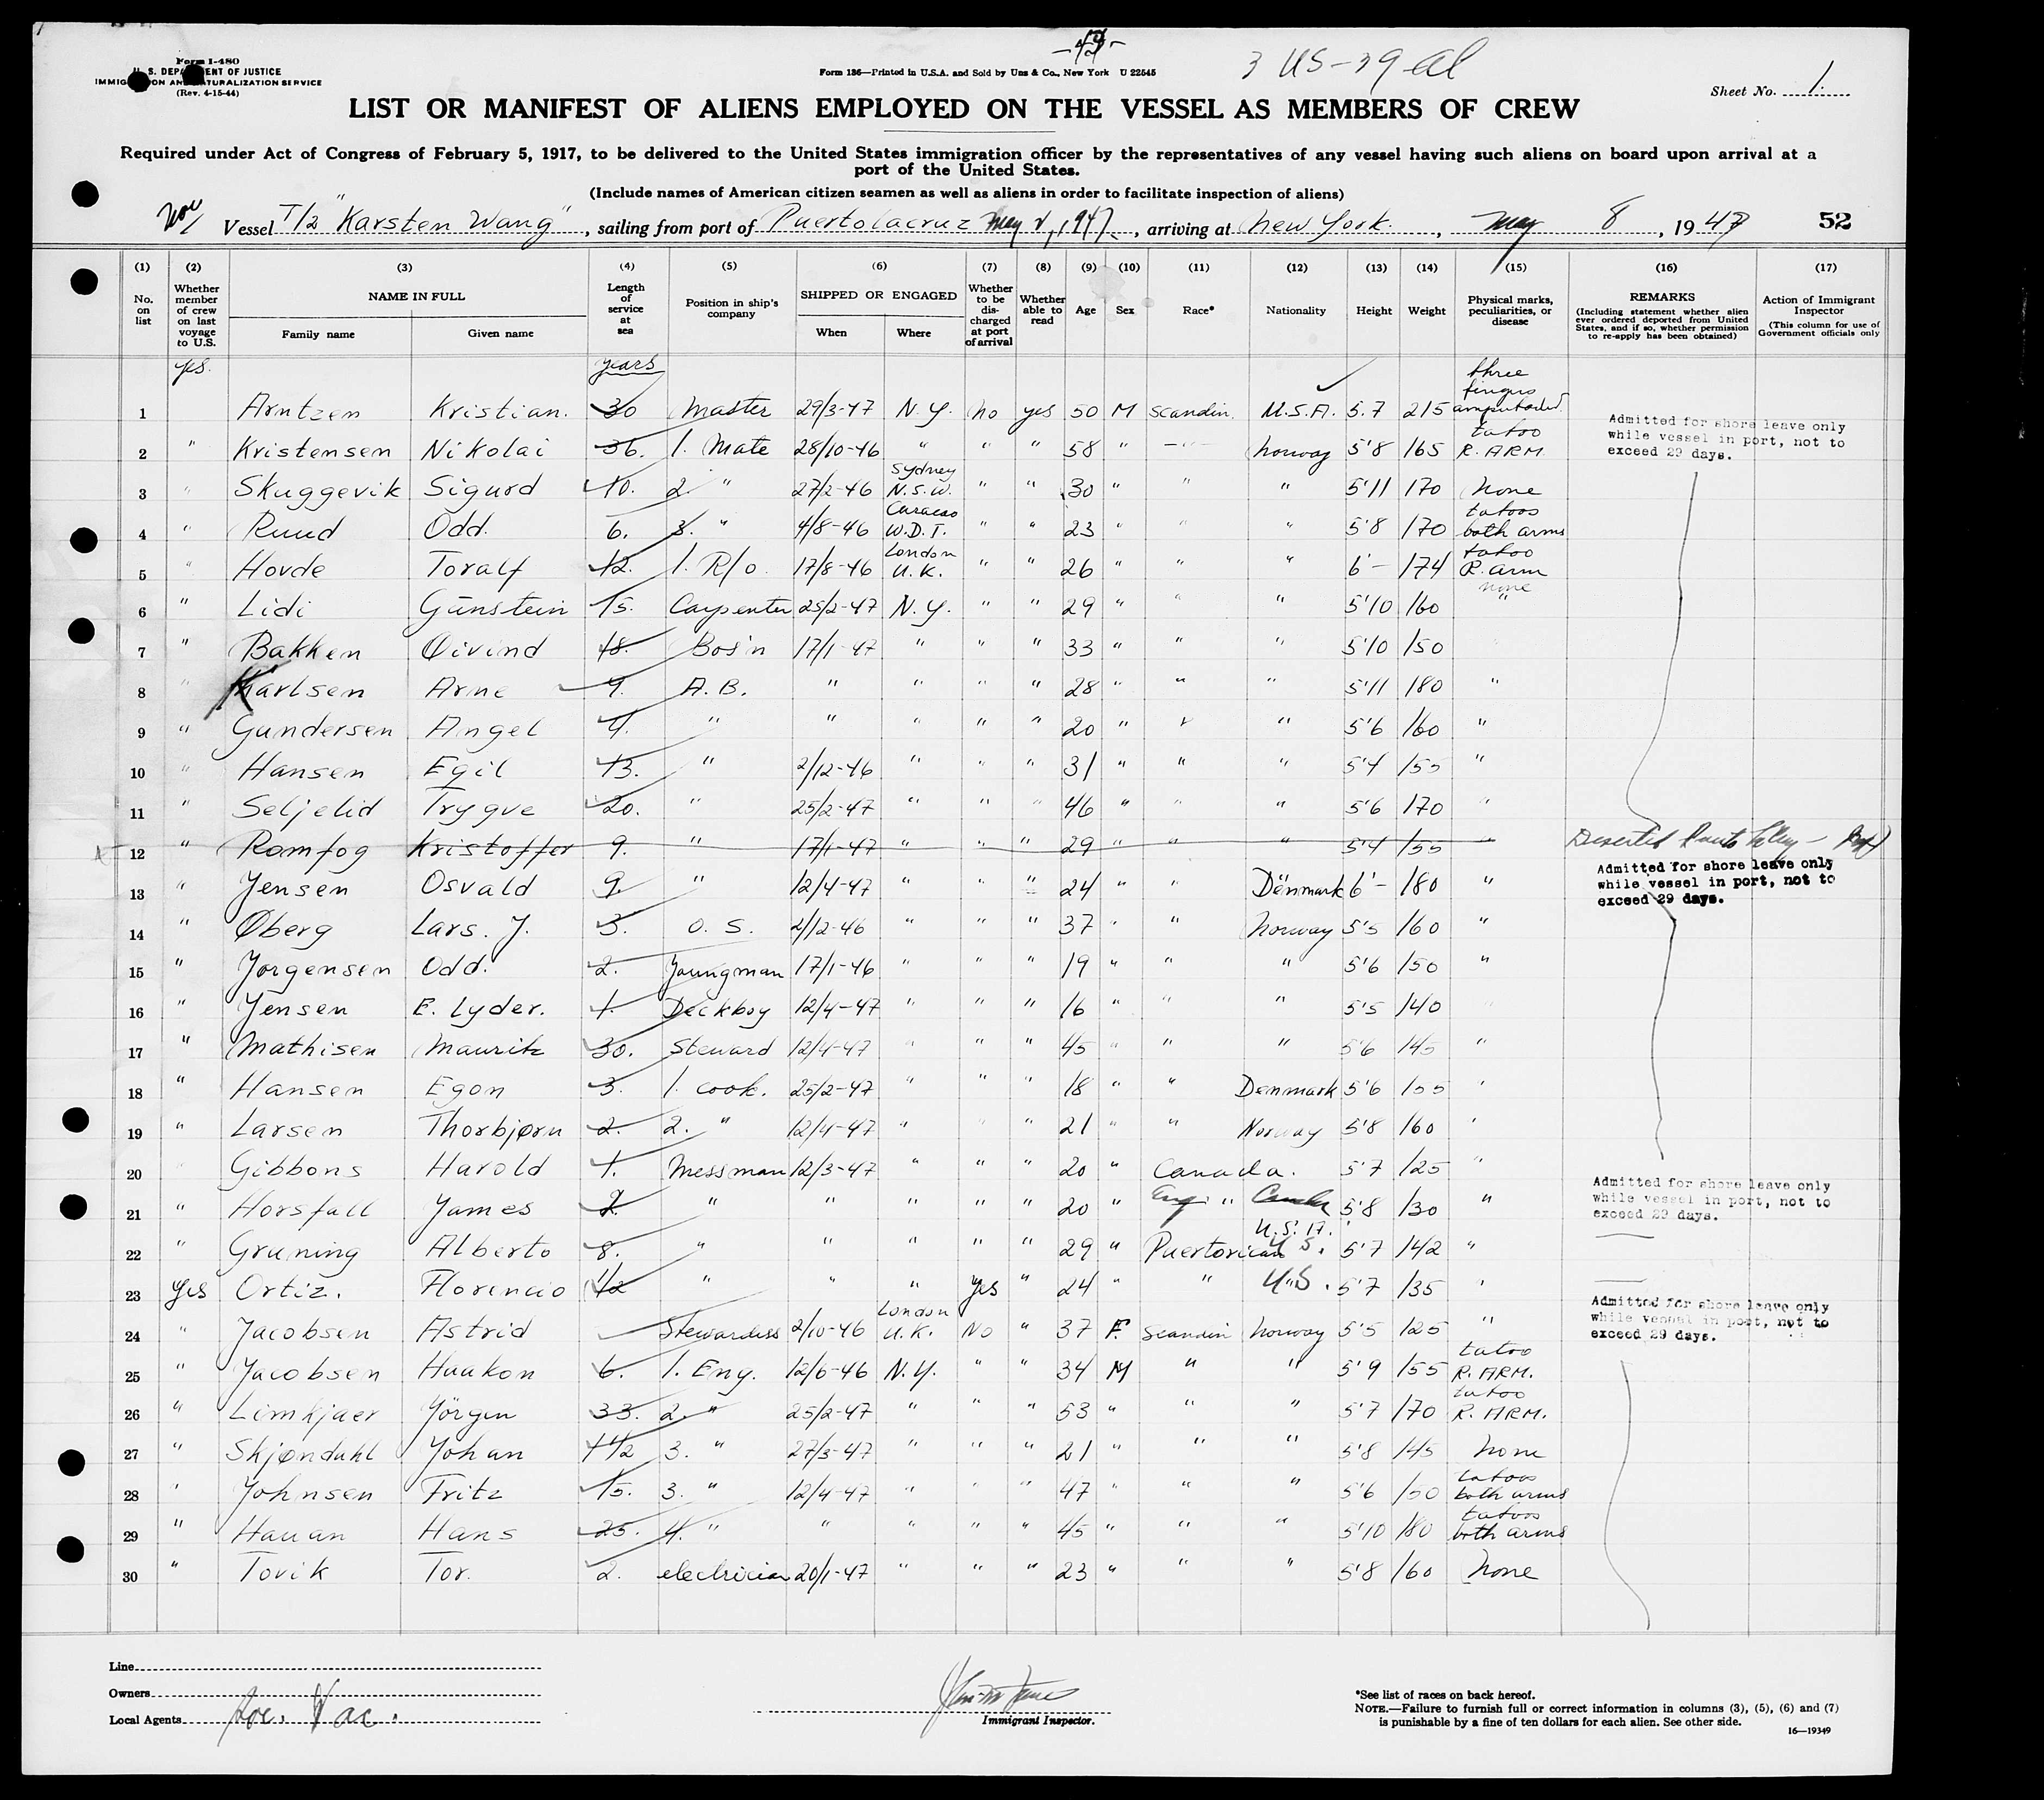 Form I-480
U. S. DEPARTMENT OF JUSTICE
IMMIGRATION AND NATURALIZATION SERVICE
(Rev. 4-15-44)
Form 136—Printed in U.S.A. and Sold by Unz & Co., New York U 22545
3 US-39 al
Sheet No. 1.
LIST OR MANIFEST OF ALIENS EMPLOYED ON THE VESSEL AS MEMBERS OF CREW
Required under Act of Congress of February 5, 1917, to be delivered to the United States immigration officer by the representatives of any vessel having such aliens on board upon arrival at a
port of the United States.
(Include names of American citizen seamen as well as aliens in order to facilitate inspection of aliens)
Nor/ Vessel T/2 "Karsten Wang", sailing from port of Puertolacruz May 2, 1947, arriving at New York, May 8, 1947 52
(1) No. on list (2) Whether member of crew on last voyage to U.S. (3) NAME IN FULL Family name Given name (4) Length of service at sea (5) Position in ship's company (6) SHIPPED OR ENGAGED When Where (7) Whether to be discharged at port of arrival (8) Whether able to read (9) Age (10) Sex (11) Race* (12) Nationality (13) Height (14) Weight (15) Physical marks, peculiarities, or disease (16) REMARKS (Including statement whether alien ever ordered deported from United States, and if so, whether permission to re-apply has been obtained) (17) Action of Immigrant Inspector (This column for use of Government officials only
yes. years
1 Arntzen Kristian. 30 Master 29/3-47 N.Y. no yes 50 M Scandin. U.S.A. 5.7 215 three fingers amputated
Admitted for shore leave only
while vessel in port, not to
exceed 29 days.
2 " Kristensen Nikolai 36. 1. Mate 28/10-46 " " " 58 " -"- Norway 5'8 165 tatoo R. ARM.
3 " Skuggevik Sigurd 10. 2. " 27/2-46 Sydney N.S.W. " " 30 " " " 5'11 170 None
4 " Ruud Odd. 6. 3. " 4/8-46 Curacao W.D.I. " " 23 " " " 5'8 170 tatoos both arms
5 " Hovde Toralf 12. 1. R/o. 17/8-46 London U.K. " " 26 " " " 6'- 174 tatoo R. arm
6 " Lidi Gunstein 15. Carpenter 25/2-47 N.Y. " " 29 " " " 5'10 160 none "
7 " Bakken Øivind 18. Bos'n 17/1-47 " " " 33 " " " 5'10 150
8 " Karlsen Arne 9. A.B. " " " " 28 " " " 5'11 180 "
9 " Gundersen Angel 4. " " " " " 20 " " " 5'6 160 "
10 " Hansen Egil 13. " 2/12-46 " " " 31 " " " 5'4 155 "
11 " Seljelid Trygve 20. " 25/2-47 " " " 46 " " " 5'6 170 "
12 " Romfog Kristoffer 9. " 17/1-47 " " " 29 " " " 5'4 155 " Deserted
13 " Jensen Osvald 9. " 12/4-47 " " " 24 " " Denmark 6'- 180 "
Admitted for shore leave only
while vessel in port, not to
exceed 29 days.
14 " Øberg Lars. J. 3. O. S. 2/12-46 " " " 37 " " Norway 5'5 160 "
15 " Jorgensen Odd. 2. Youngman 17/1-46 " " " 19 " " " 5'6 150 "
16 " Jensen E. Lyder. 1. Deckboy 12/4-47 " " " 16 " " " 5'5 140
17 " Mathisen Mauritz 30. Steward 12/4-47 " " " 45 " " " 5'6 145 "
18 " Hansen Egon 3. 1. cook. 25/2-47 " " " 18 " " Denmark 5'6 155 "
19 " Larsen Thorbjørn 2. 2. " 12/4-47 " " " 21 " " Norway 5'8 160 "
20 " Gibbons Harold 1. Messman 12/3-47 " " " 20 " Canada. 5'7 125 "
Admitted for shore leave only
while vessel in port, not to
exceed 29 days.
21 " Horsfall James 2. " " " " " 20 " Eng " 5'8 130 "
22 " Gruning Alberto 8. " " " " " 29 " Puertorican U.S.A. U.S. 5'7 142 "
23 Yes Ortiz. Florencio 1/2 " " " Yes " 24 " " U.S. 5'7 135 "
24 " Jacobsen Astrid Stewardess 2/10-46 London U.K. No " 37 F. Scandin Norway 5'5 125 "
Admitted for shore leave only
while vessel in port, not to
exceed 29 days.
25 " Jacobsen Haakon 6. 1. Eng. 12/6-46 N.Y. " " 34 M " " 5'9 155 tatoo R. ARM.
26 " Limkjaer Jörgen 33. 2. " 25/2-47 " " " 53 " " " 5'7 170 tatoo R. ARM.
27 " Skjøndahl Johan 1 1/2 3. " 27/3-47 " " " 21 " " " 5'8 145 None
28 " Johnsen Fritz 15. 3. " 12/4-47 " " " 47 " " " 5'6 150 tatoos both arms
29 " Hauan Hans 25. 4. " " " " " 45 " " " 5'10 180 tatoos both arms
30 " Tovik Tor. 2. electrician 20/1-47 " " " 23 " " " 5'8 160 None
Line
Owners
Local Agents Soc. Vac.
Immigrant Inspector.
*See list of races on back hereof.
NOTE.—Failure to furnish full or correct information in columns (3), (5), (6) and (7)
is punishable by a fine of ten dollars for each alien. See other side.
16—19349